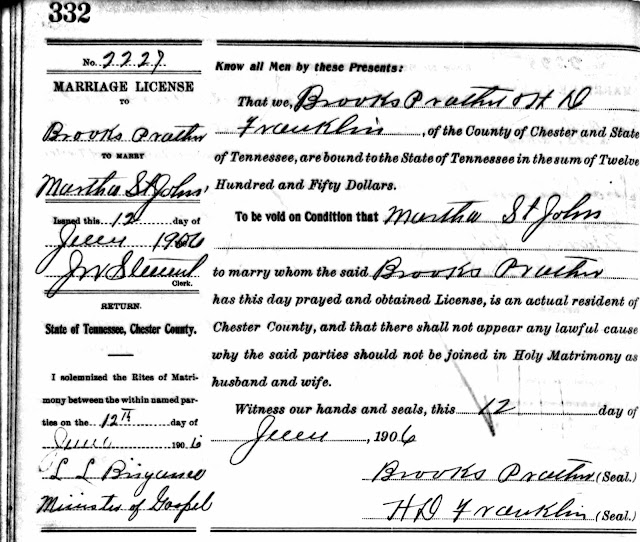 332
No. 2227
MARRIAGE LICENSE
TO
Brooks Prather
TO MARRY
Martha St Johns,
Issued this 12 day of
June 1906
Clerk.
RETURN.
State of Tennessee, Chester County.
I solemnized the Rites of Matri-
mony between the within named par-
ties on the 12TH day of
June 1906
L L
Minister of Gospel
Know all Men by these Presents:
That we, Brooks Prather & H D
Franklin, of the County of Chester and State
of Tennessee, are bound to the State of Tennessee in the sum of Twelve
Hundred and Fifty Dollars.
To be void on Condition that Martha St John
to marry whom the said Brooks Prather
has this day prayed and obtained License, is an actual resident of
Chester County, and that there shall not appear any lawful cause
why the said parties should not be joined in Holy Matrimony as
husband and wife.
Witness our hands and seals, this 12 day of
June, 1906
Brooks Prather (Seal.)
H D Franklin (Seal.)